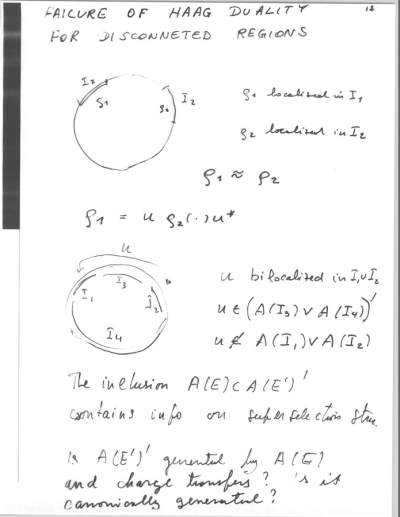 FAILURE OF HAAG DUALITY 12
FOR DISCONNETED REGIONS
I₁ ρ₁ ρ₂ I₂
ρ₁ localized in I₁
ρ₂ localized in I₂
ρ₁ ≈ ρ₂
ρ₁ = u ρ₂(·)u*
u
I₁ I₃ I₂ I₄
u bilocalized in I₁∪I₂
u ∈ (A(I₃) ∨ A(I₄))'
u ∉ A(I₁) ∨ A(I₂)
The inclusion A(E) ⊂ A(E')'
contains info on superselection struc.
Is A(E')' generated by A(E)
and charge transfers? Is it
canonically generated?